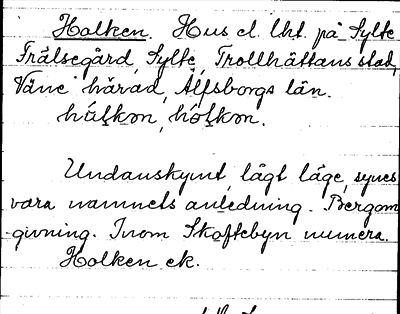 Holken. Hus el. lht. på Sylte
Frälsegård, Sylte, Trollhättans stad,
Väne härad, Älfsborgs län.
húlkơn, hólkơn.
Undanskymt, lågt läge, synes
vara namnets anledning. Bergom
givning. Inom Skoftebyn numera.
Holken ek.